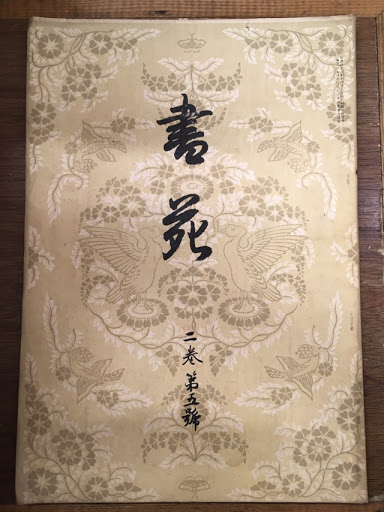 書苑
二卷第五號